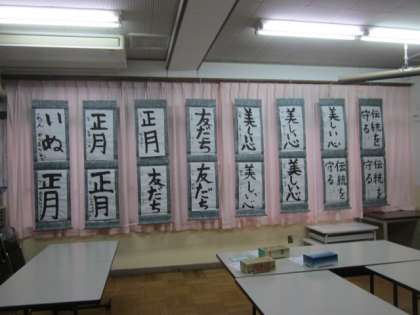 伝統を
守る
伝統を
守る
美しい心
伝統を
守る
美しい心
美しい心
美しい心
美しい心
友だち
友だち
正月
友だち
正月
正月
いぬ
正月